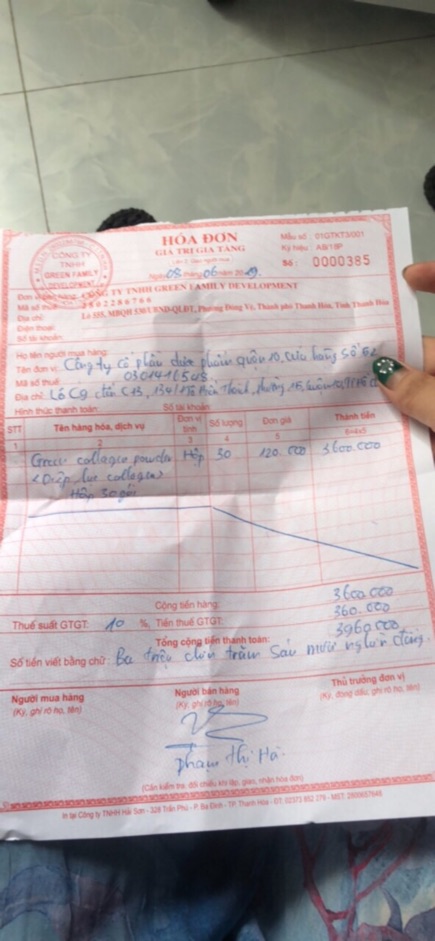 HÓA ĐƠN
GIÁ TRỊ GIA TĂNG
Liên 2: Giao người mua
Ngày 08 tháng 06 năm 2019.
Mẫu số : 01GTKT3/001
Ký hiệu : AB/18P
Số : 0000385
CÔNG TY
TNHH
GREEN FAMILY
DEVELOPMENT
Đơn vị bán hàng: CÔNG TY TNHH GREEN FAMILY DEVELOPMENT
Mã số thuế: 2802286766
Địa chỉ: Lô 555, MBQH 530/UBND-QLĐT, Phường Đông Vệ, Thành phố Thanh Hóa, Tỉnh Thanh Hóa
Điện thoại:
Số tài khoản:
Họ tên người mua hàng:
Tên đơn vị: Công ty cổ phần dược phẩm quận 10, cửa hàng số 62
Mã số thuế:
Địa chỉ: Lô C9 13, 134/1 Tô Hiến Thành, phường 15, Quận 10,
Hình thức thanh toán: Số tài khoản
STT Tên hàng hóa, dịch vụ Đơn vị tính Số lượng Đơn giá Thành tiền
1 2 3 4 5 6=4x5
Green collagen powder Hộp 30 120.000 3600.000
<Diệp lục collagen>
Hộp 30 gói
Cộng tiền hàng: 3600.000
Thuế suất GTGT: 10 %, Tiền thuế GTGT: 360.000
Tổng cộng tiền thanh toán: 3960.000
Số tiền viết bằng chữ: Ba triệu chín trăm sáu mươi nghìn đồng.
Người mua hàng Người bán hàng Thủ trưởng đơn vị
(Ký, ghi rõ họ, tên) (Ký, ghi rõ họ, tên) (Ký, đóng dấu, ghi rõ họ, tên)
Phạm Thị Hà.
(Cần kiểm tra, đối chiếu khi lập, giao, nhận hóa đơn)
In tại Công ty TNHH Hải Sơn - 328 Trần Phú - P. Ba Đình - TP. Thanh Hóa - ĐT: 02373 852 279 - MST: 2800657648